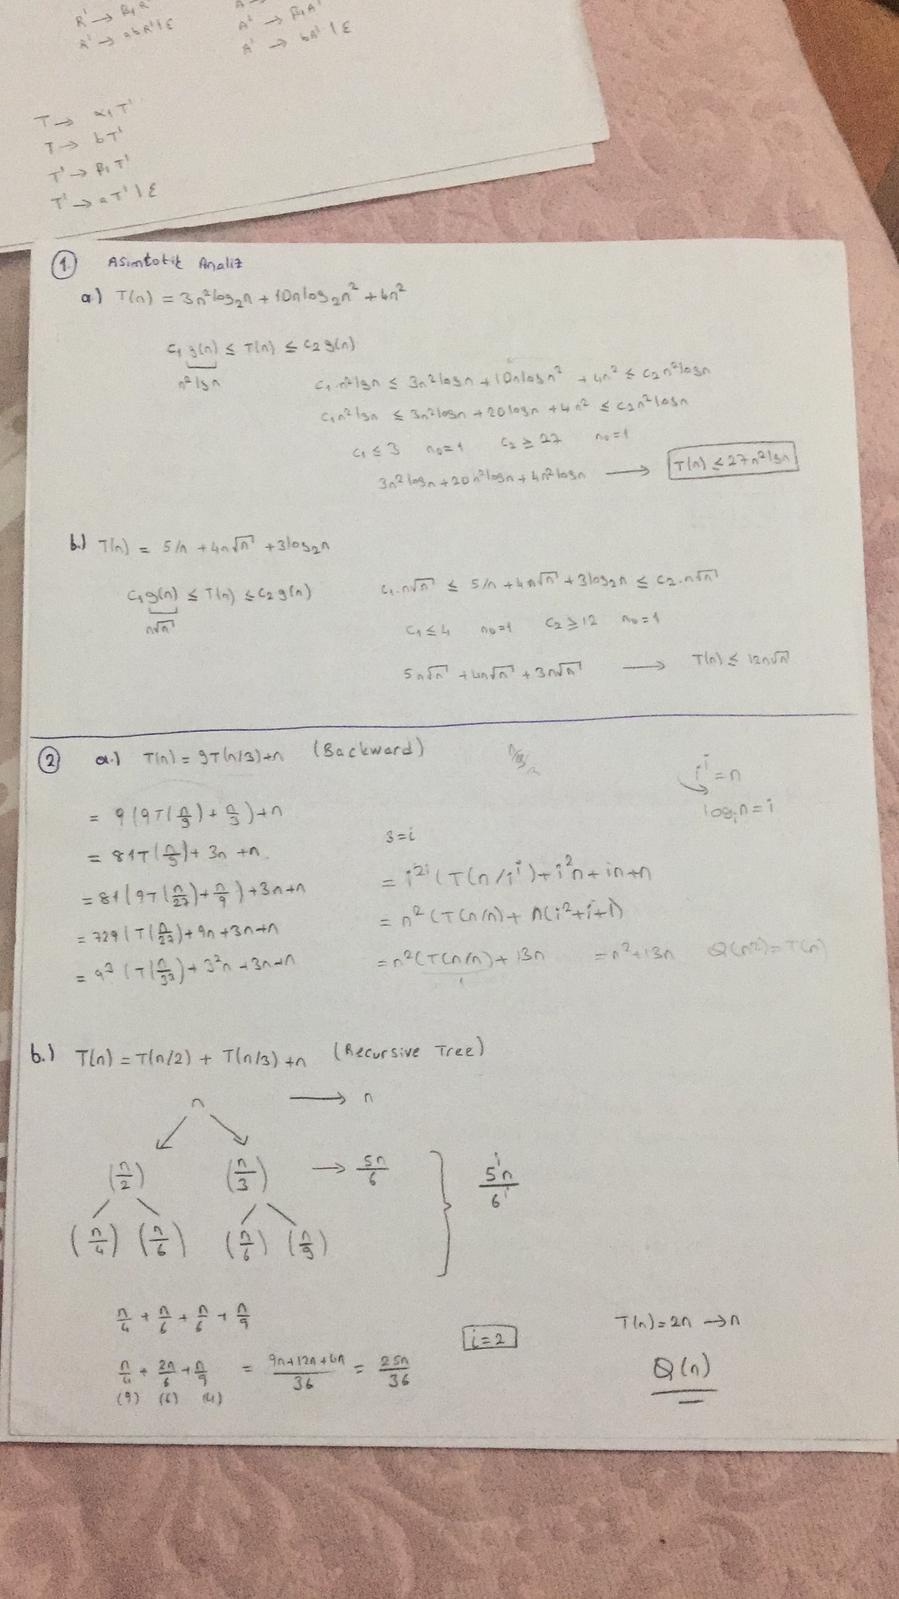 R' → β₁R'
R' → abR' | ε
A' → β₁A'
A' → bA' | ε
T → α₁T'
T → bT'
T' → β₁T'
T' → aT' | ε
1. Asimtotik Analiz
a.) T(n) = 3n²log₂n + 10nlog₂n² + 4n²
c₁g(n) ≤ T(n) ≤ c₂g(n)
n²lgn
c₁n²lgn ≤ 3n²logn + 10nlogn² + 4n² ≤ c₂n²logn
c₁n²lgn ≤ 3n²logn + 20logn + 4n² ≤ c₂n²logn
c₁ ≤ 3 n₀=1 c₂ ≥ 27 n₀=1
3n²logn + 20n²logn + 4n²logn → T(n) ≤ 27n²lgn
b.) T(n) = 5/n + 4n√n + 3log₂n
c₁g(n) ≤ T(n) ≤ c₂g(n)
n√n
c₁.n√n ≤ 5/n + 4n√n + 3log₂n ≤ c₂.n√n
c₁ ≤ 4 n₀=1 c₂ ≥ 12 n₀=1
5n√n + 4n√n + 3n√n → T(n) ≤ 12n√n
2 a.) T(n) = 9T(n/3)+n (Backward)
= 9(9T(n/9) + n/3)+n
= 81T(n/9) + 3n + n
= 81(9T(n/27) + n/9) + 3n+n
= 729(T(n/27) + 9n + 3n+n
= 9³(T(n/3³) + 3²n + 3n+n
iⁱ = n
logᵢn = i
3=i
= i²ⁱ(T(n/iⁱ) + i²n + in+n
= n²(T(n/n) + n(i²+i+1)
= n²(T(n/n) + 13n = n²+13n Θ(n²) = T(n)
1
b.) T(n) = T(n/2) + T(n/3) + n (Recursive Tree)
n → n
(n/2) (n/3) → 5n/6
(n/4) (n/6) (n/6) (n/9)
5ⁱn/6ⁱ
n/4 + n/6 + n/6 + n/9
n/4 + 2n/6 + n/9 = 9n+12n+4n/36 = 25n/36
(9) (6) (4)
i=2
T(n) = 2n → n
Θ(n)